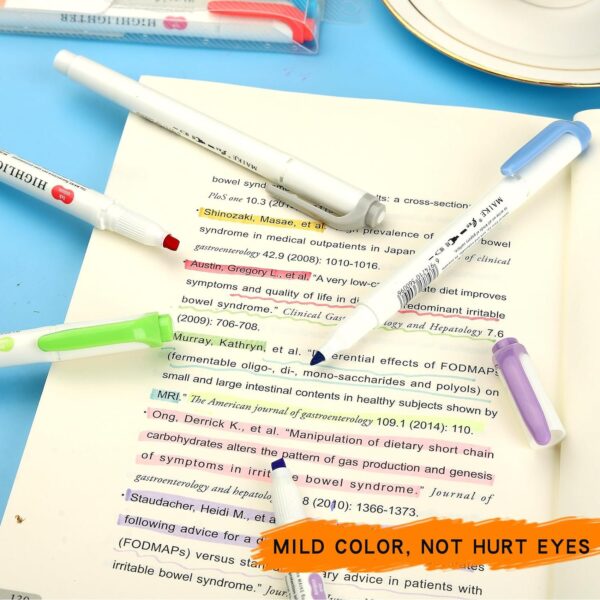 HIGHLIGHTER
bowel synd
s: a cross-section
PloS one 10.3 (20
Shinozaki, Masae, et al. prevalence of bowel
syndrome in medical outpatients in Japan of clinical
gastroenterology 42.9 (2008): 1010-1016.
Austin, Gregory L., et al. "A very low-c ate diet improves
symptoms and quality of life in di edominant irritable
bowel syndrome." Clinical Gas gy and Hepatology 7.6
(2009): 706-708.
Murray, Kathryn, et al. "D erential effects of FODMAPs
(fermentable oligo-, di-, mono-saccharides and polyols) on
small and large intestinal contents in healthy subjects shown by
MRI." The American journal of gastroenterology 109.1 (2014): 110.
Ong, Derrick K., et al. "Manipulation of dietary short chain
carbohydrates alters the pattern of gas production and genesis
of symptoms in irrit e bowel syndrome." Journal of
gastroenterology and hepatology 8 (2010): 1366-1373.
Staudacher, Heidi M., et a
following advice for a d
(FODMAPs) versus stan ary advice in patients with
irritable bowel syndrome." Jour
MAIKE
MAIKE
HIGHLI
MILD COLOR, NOT HURT EYES
120